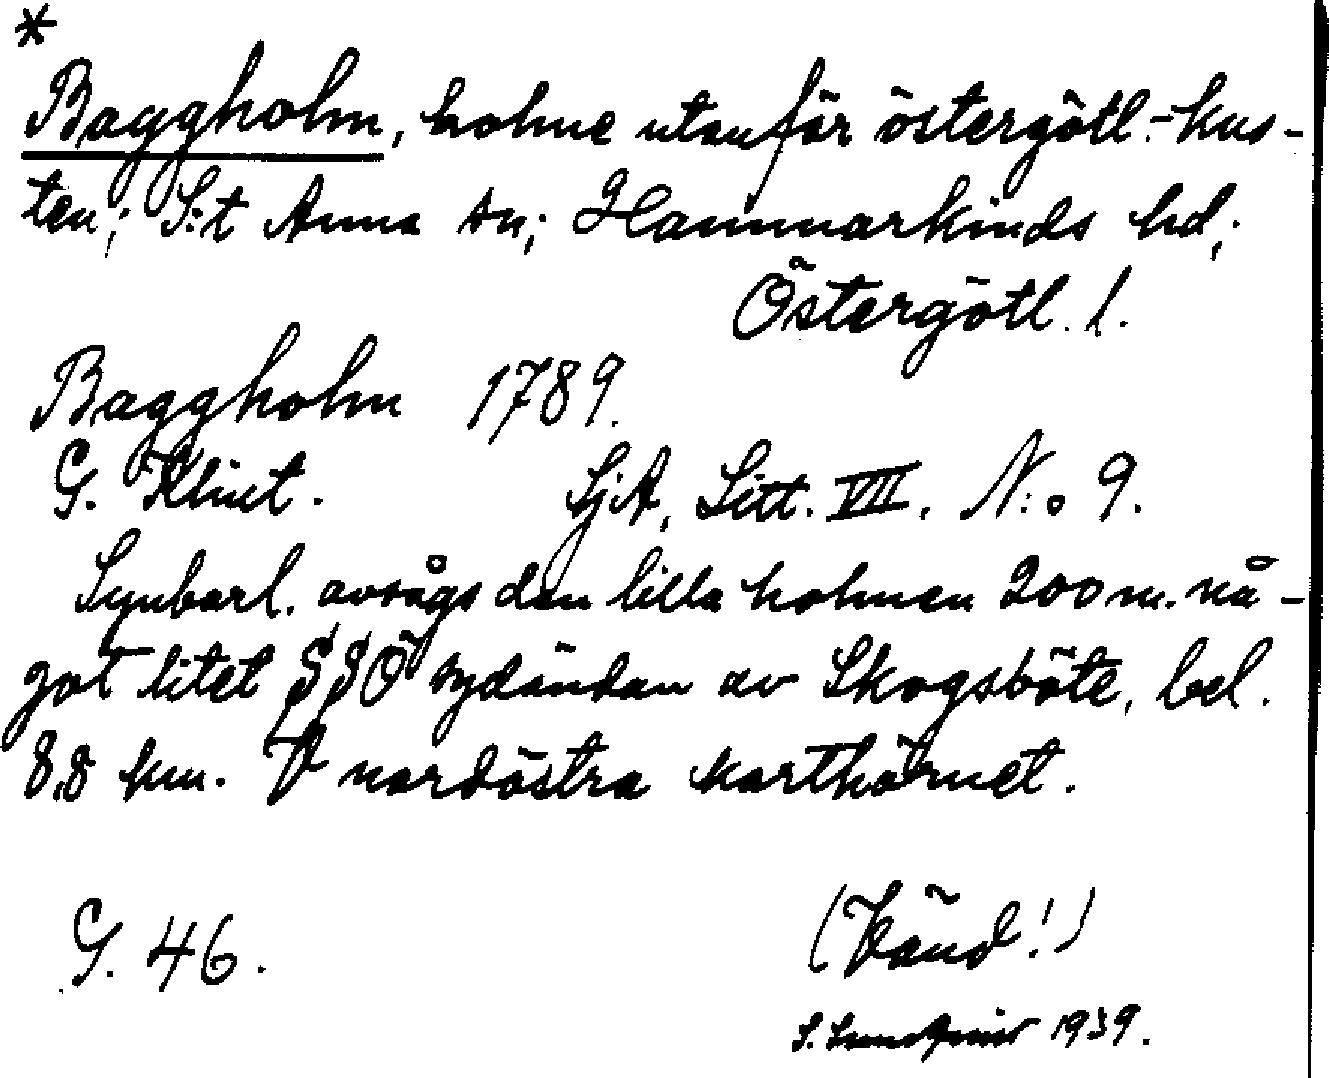 *
Baggholm, holme utanför östergötl.-kus-
ten; S:t Anna sn; Hammarkinds hd;
Östergötl. l.
Baggholm 1789.
G. Klint. SjA, Litt. VIII. N:o 9.
Synbarl. avsågs den lilla holmen 200 m. nå-
got litet SSÖ sydändan av Skogsböte, bel.
8,8 km. V nordöstra karthörnet.
G. 46.
(Vänd!)
S. Lundqvist 1939.